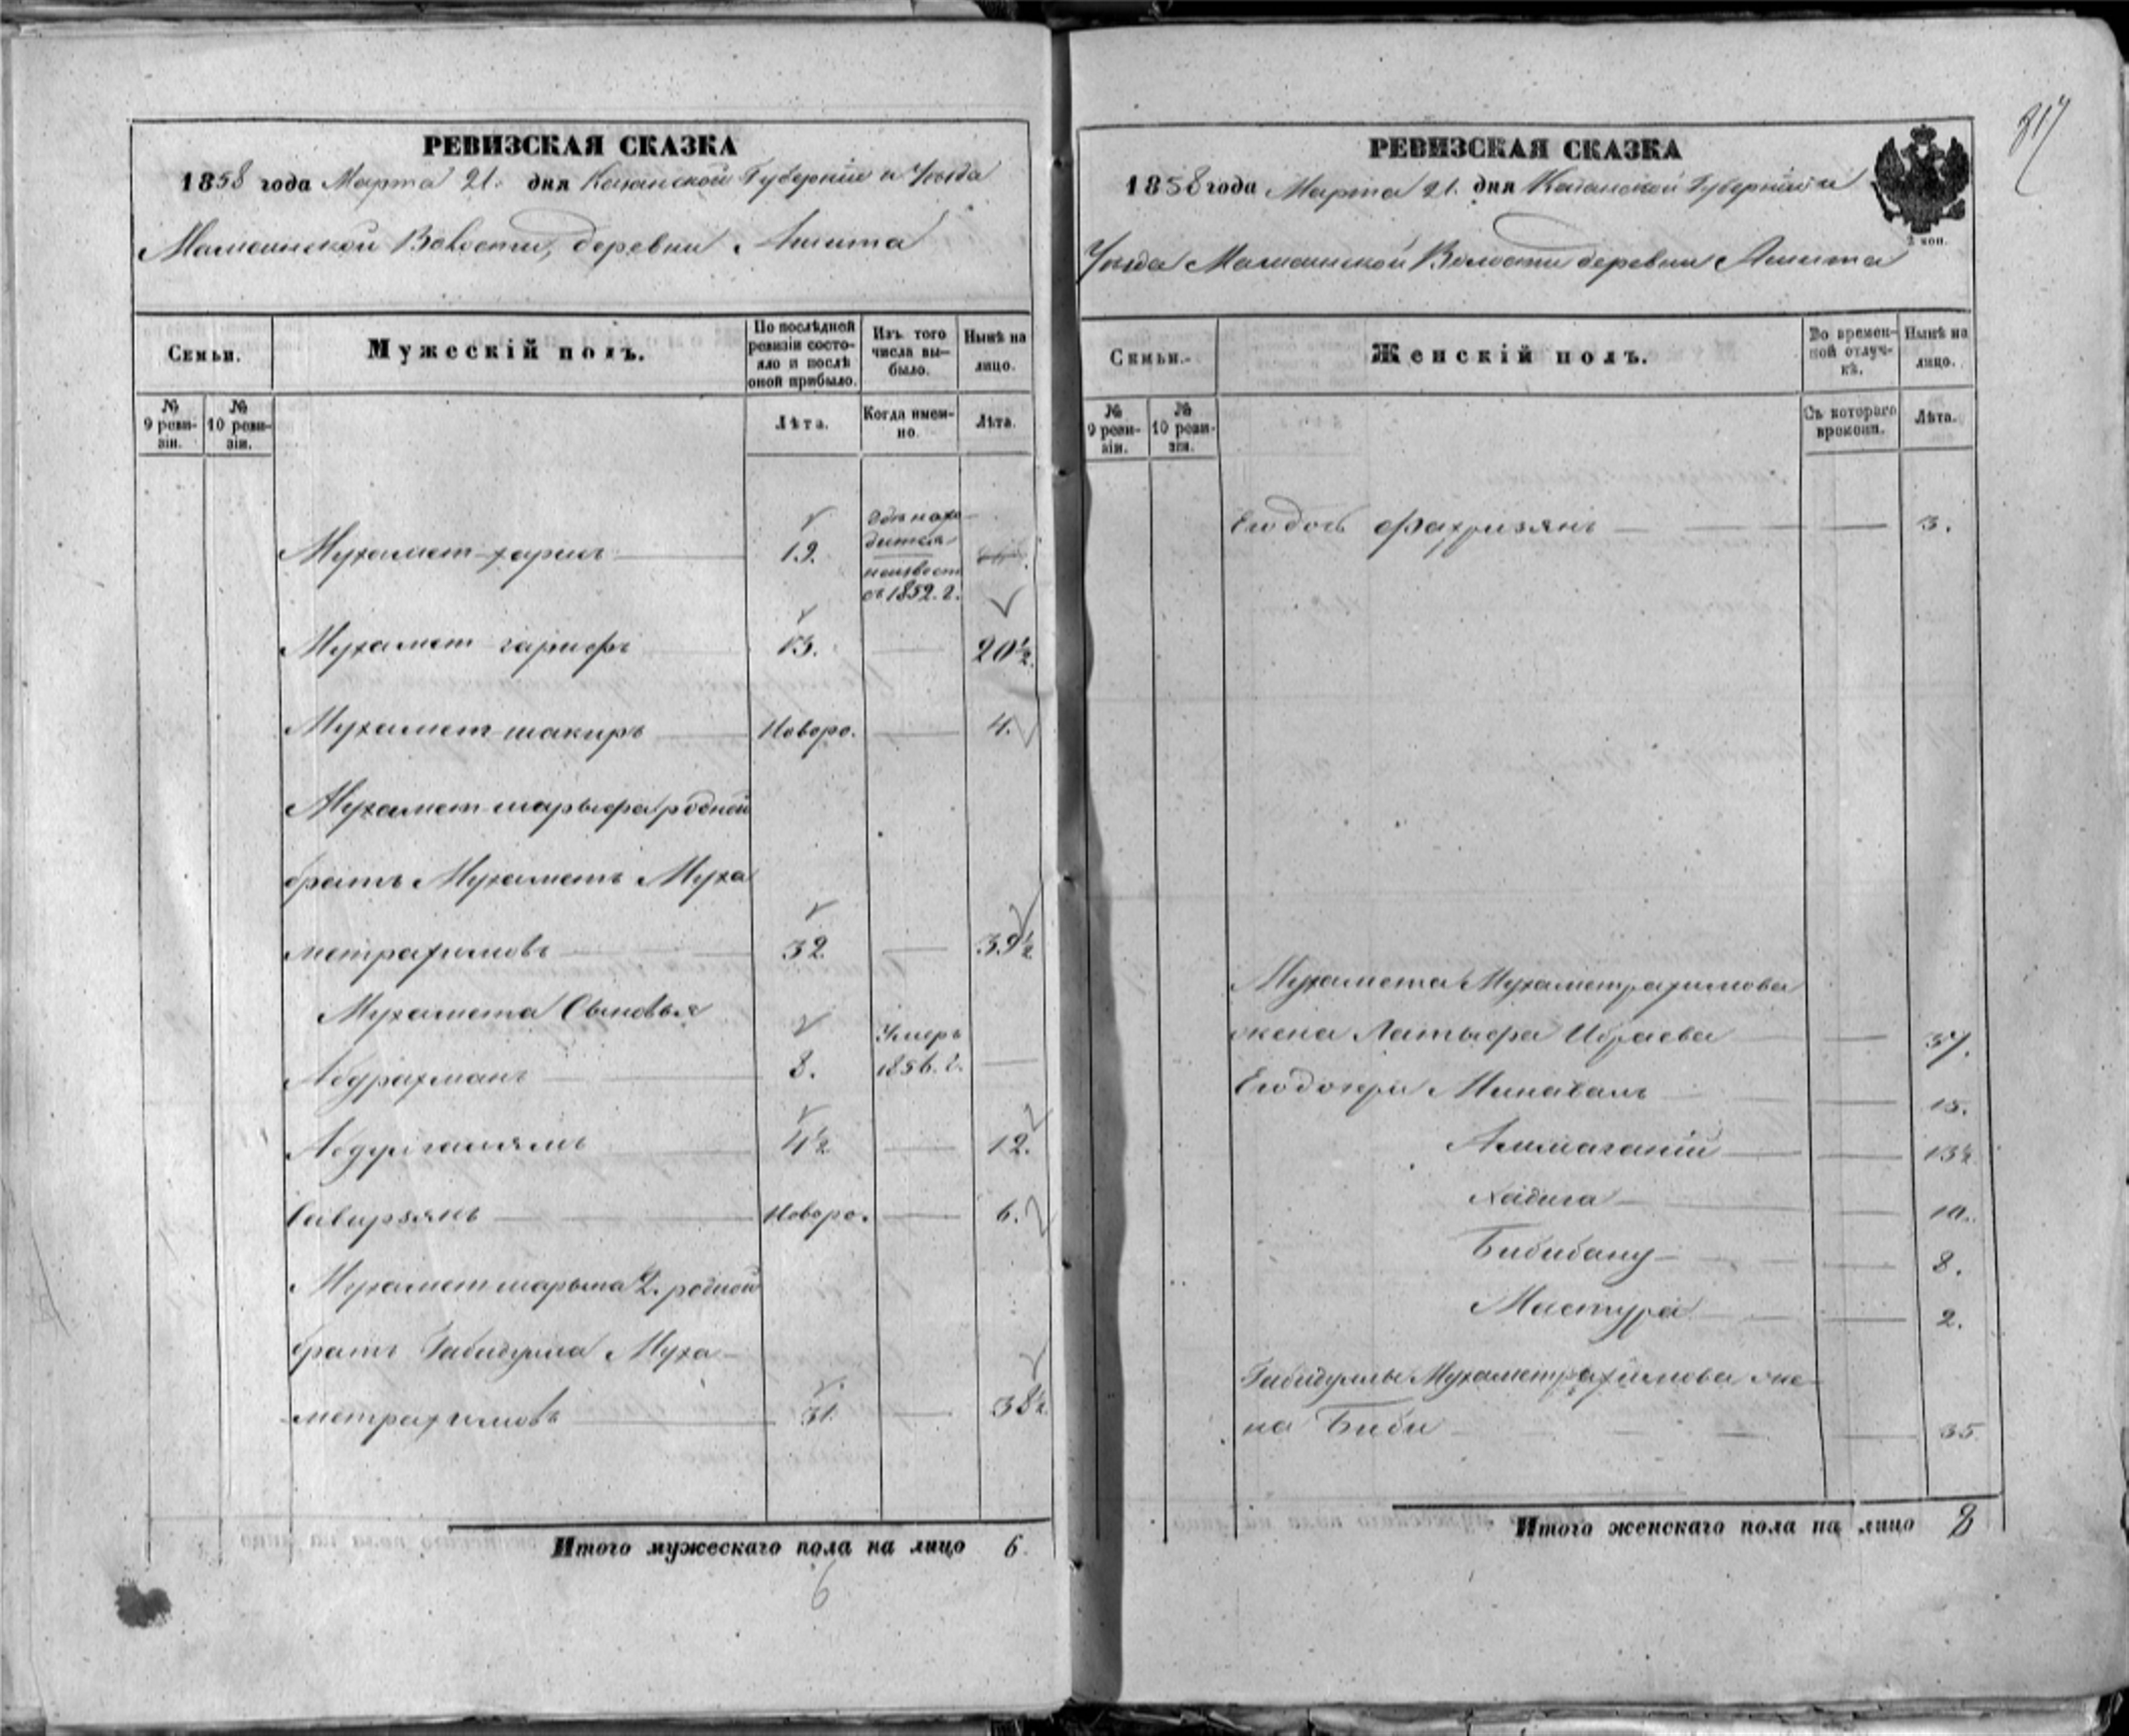 РЕВИЗСКАЯ СКАЗКА
1858 года Марта 21. дня Казанской Губерніи и Уѣзда
Волости, деревни
Семьи.
Мужескій полъ.
По послѣдней ревизіи состояло и послѣ оной прибыло.
Изъ того числа выбыло.
Нынѣ на лицо.
№ 9 ревизіи.
№ 10 ревизіи.
Лѣта.
Когда именно.
Лѣта.
Мухамет 19. гдѣ нахо
дится
неизвест
съ 1852. г.
Мухамет гарифъ 13. 20½.
Мухамет шакиръ Новоро. 4.
Мухамет шарыфа родной
братъ Мухаметъ Муха
метрахимовъ 32 39½
Мухамета Сыновья
Абдрахманъ 8. Умеръ
1856. г.
4½ 12.
Новоро. 6.
Мухамет 2. родной
братъ Габидулла Муха
метрахимовъ 31. 38½
Итого мужескаго пола на лицо 6.
6
РЕВИЗСКАЯ СКАЗКА
1858 года Марта 21. дня Казанской Губерніи и
Уѣзда Волости деревни
2 коп.
817
Семьи.
Женскій полъ.
Во временной отлучкѣ.
Нынѣ на лицо.
№ 9 ревизіи.
№ 10 ревизіи.
Съ котораго времени.
Лѣта.
Его дочь Фахризянъ 3.
Мухамета Мухаметрахимова
жена Латыфа Ибраева 37.
Его дочери 15.
13½
Хадига 10.
Бибибану 8.
Мастура 2.
Габидуллы Мухаметрахимова же
на Биби 35.
Итого женскаго пола на лицо 8